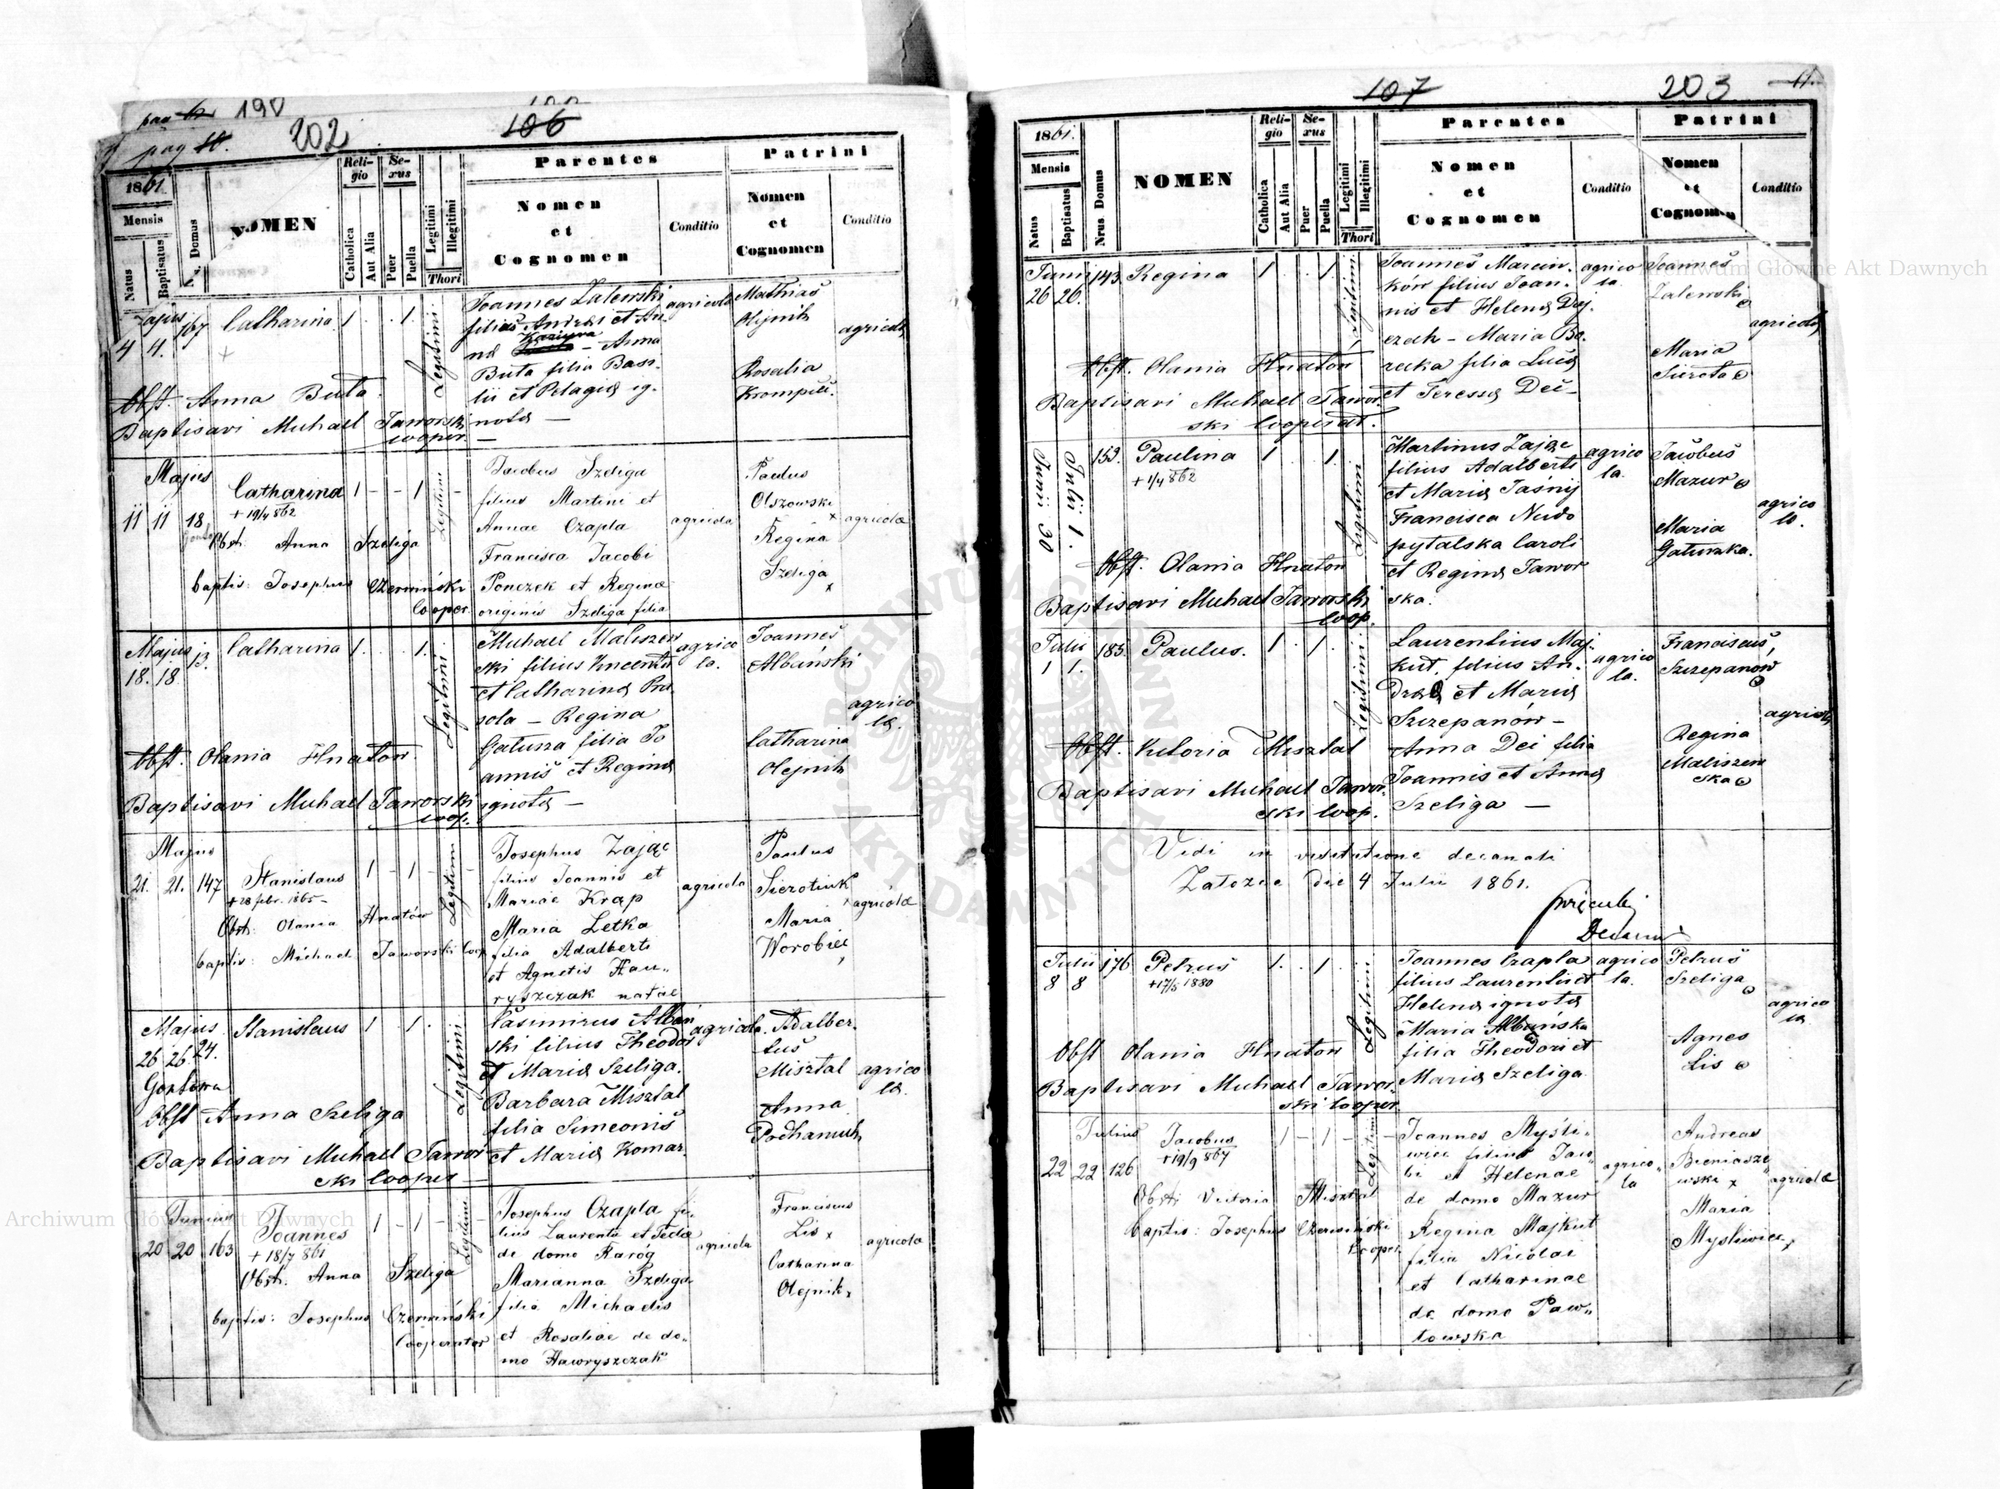 pag 190
pag
202
106
1861.
Mensis
Natus
Baptisatus
N. Domus
NOMEN
Religio
Catholica
Aut Alia
Sexus
Puer
Puella
Legitimi
Illegitimi
Thori
Parentes
Nomen
et
Cognomen
Conditio
Patrini
Nomen
et
Cognomen
Conditio
Majus
4 4. 167 Catharina 1 . . 1.
Legitimi
Joannes Zalewski
filius Andreæ et An-
næ Kasiura
— Anna
Buta filia Basi-
lii et Pelagiæ ig-
notæ —
agricola
Mathias
Olejnik
Rosalia
agricolæ
Obst. Anna Buta.
Baptisavi Michael Jaworski
cooper. —
Majus
11 11 18. Catharina 1 - - 1 -
+ 19/4 862
Legitimi
Obst: Anna Szeliga
baptis: Josephus Czermiński
Cooper.
Jacobus Szeliga
filius Martini et
Annae Czapla
Francisca Jacobi
Ponczek et Reginæ
originis Szeliga filia
agricola
Paulus
Olszowski
x
Regina
Szeliga
x
agricolæ
Majus
18. 18. 13. Catharina 1. . . 1.
Legitimi
Michael Maliszew
ski filius Vincentii
et Catharinæ Pro-
sola — Regina
Gatuna filia Jo
annis et Reginæ
ignotæ —
agrico
la.
Joannes
Albański
Catharina
Olejnik
agrico
læ.
Obst. Olania Hnatow.
Baptisavi Michael Jaworski
coop.
Majus
21. 21. 147 Stanislaus 1 - 1 - -
+ 28 febr. 1865 -
Legitimi
Obst: Olania Hnatów
baptis: Michael Jaworski Coop
Josephus Zając
filius Joannis et
Mariae Krap
Maria Letka
filia Adalberti
et Agnetis Haw„
ryszczak natae
agricola
Paulus
Sierotiuk
x
Maria
Worobiec
agricolæ
Majus
26 26 24. Stanislaus 1 . 1 .
Legitimi
Casimirus Albań
ski filius Theodori
et Mariæ Szeliga.
Barbara Misztal
filia Simeonis
et Mariæ Komar.
agricola.
Adalber-
tus
Misztal
Anna
agrico
læ.
Obst Anna Szeliga
Baptisavi Michael Jawor
ski cooper —
Junius
20 20 163 Joannes 1 - 1 - -
+ 18/7 861
Legitimi
Obst. Anna Szeliga
baptis: Josephus Czermiński
Cooperator
Josephus Czapla fi„
lius Laurentii et Teclæ
de domo Karóg
Marianna Szeliga
filia Michaelis
et Rosaliae de do„
mo Hawryszczak
agricola
Franciscus
Lis x
Catharina
Olejnik x
agricolæ
107
203
11.
1861.
Mensis
Natus
Baptisatus
Nrus Domus
NOMEN
Religio
Catholica
Aut Alia
Sexus
Puer
Puella
Legitimi
Illegitimi
Thori
Parentes
Nomen
et
Cognomen
Conditio
Patrini
Nomen
et
Cognomen
Conditio
Junij
26 26. 143 Regina 1 . . 1.
Legitimi
Joannes Marcin-
ków filius Joan-
nis et Helenæ Daj
czak — Maria Bo-
recka filia Lucæ
et Teressæ Dei —
agrico
la.
Joannes
Zalewski
Maria
Sierota
agricolæ
Obst. Olania Hnatow
Baptisavi Michael Jawor-
ski Cooperat.
Junii 30
Julii 1.
153. Paulina 1 . . 1.
+ 1/4 862
Legitimi
Martinus Zając
filius Adalberti
et Mariæ Jaśnij
Francisca Niedo
pytalska Caroli
et Reginæ Jawor
ska.
agrico
la.
Jacobus
Mazur
Maria
Gatuszka.
agrico
læ.
Obst. Olania Hnatow
Baptisavi Michael Jaworski
Coop.
Julii
1 1. 185. Paulus. 1 . 1 .
Legitimi
Laurentius Maj-
kut, filius An-
dreæ et Mariæ
Szczepanów —
Anna Dei filia
Joannis et Annæ
Szeliga —
agrico
la.
Franciscus,
Szczepanow
Regina
Maliszew
ska
agricolæ
Obst. Victoria Misztal
Baptisavi Michael Jawor-
ski Coop.
Vidi in visitatione decanali
Załozce die 4 Julii 1861.
Decanus
Julii
8 8 176 Petrus 1. . 1
+ 17/5 1880
Legitimi
Joannes Czapla
filius Laurentii et
Helenæ ignotæ
Maria Albańska
filia Theodori et
Mariæ Szeliga
agrico
la.
Petrus
Szeliga
Agnes
Lis
agrico
læ
Obst Olania Hnatow
Baptisavi Michael Jawor
ski Cooper
Julius
22 22 126 Jacobus 1 - 1 - -
+ 19/9 867
Legitimi
Obst: Victoria Misztal
baptis: Josephus Czermiński
Cooper.
Joannes Myśli„
wiec filius Jaco„
bi et Helenae
de domo Mazur
Regina Majkut
filia Nicolai
et Catharinae
de domo Paw„
łowska
agrico„
la
Andreas
Bieniasze„
wski x
Maria
Mysliwiec x
agricolæ
Archiwum Główne Akt Dawnych
Archiwum Główne Akt Dawnych
ARCHIWUM GŁÓWNE · AKT DAWNYCH ·